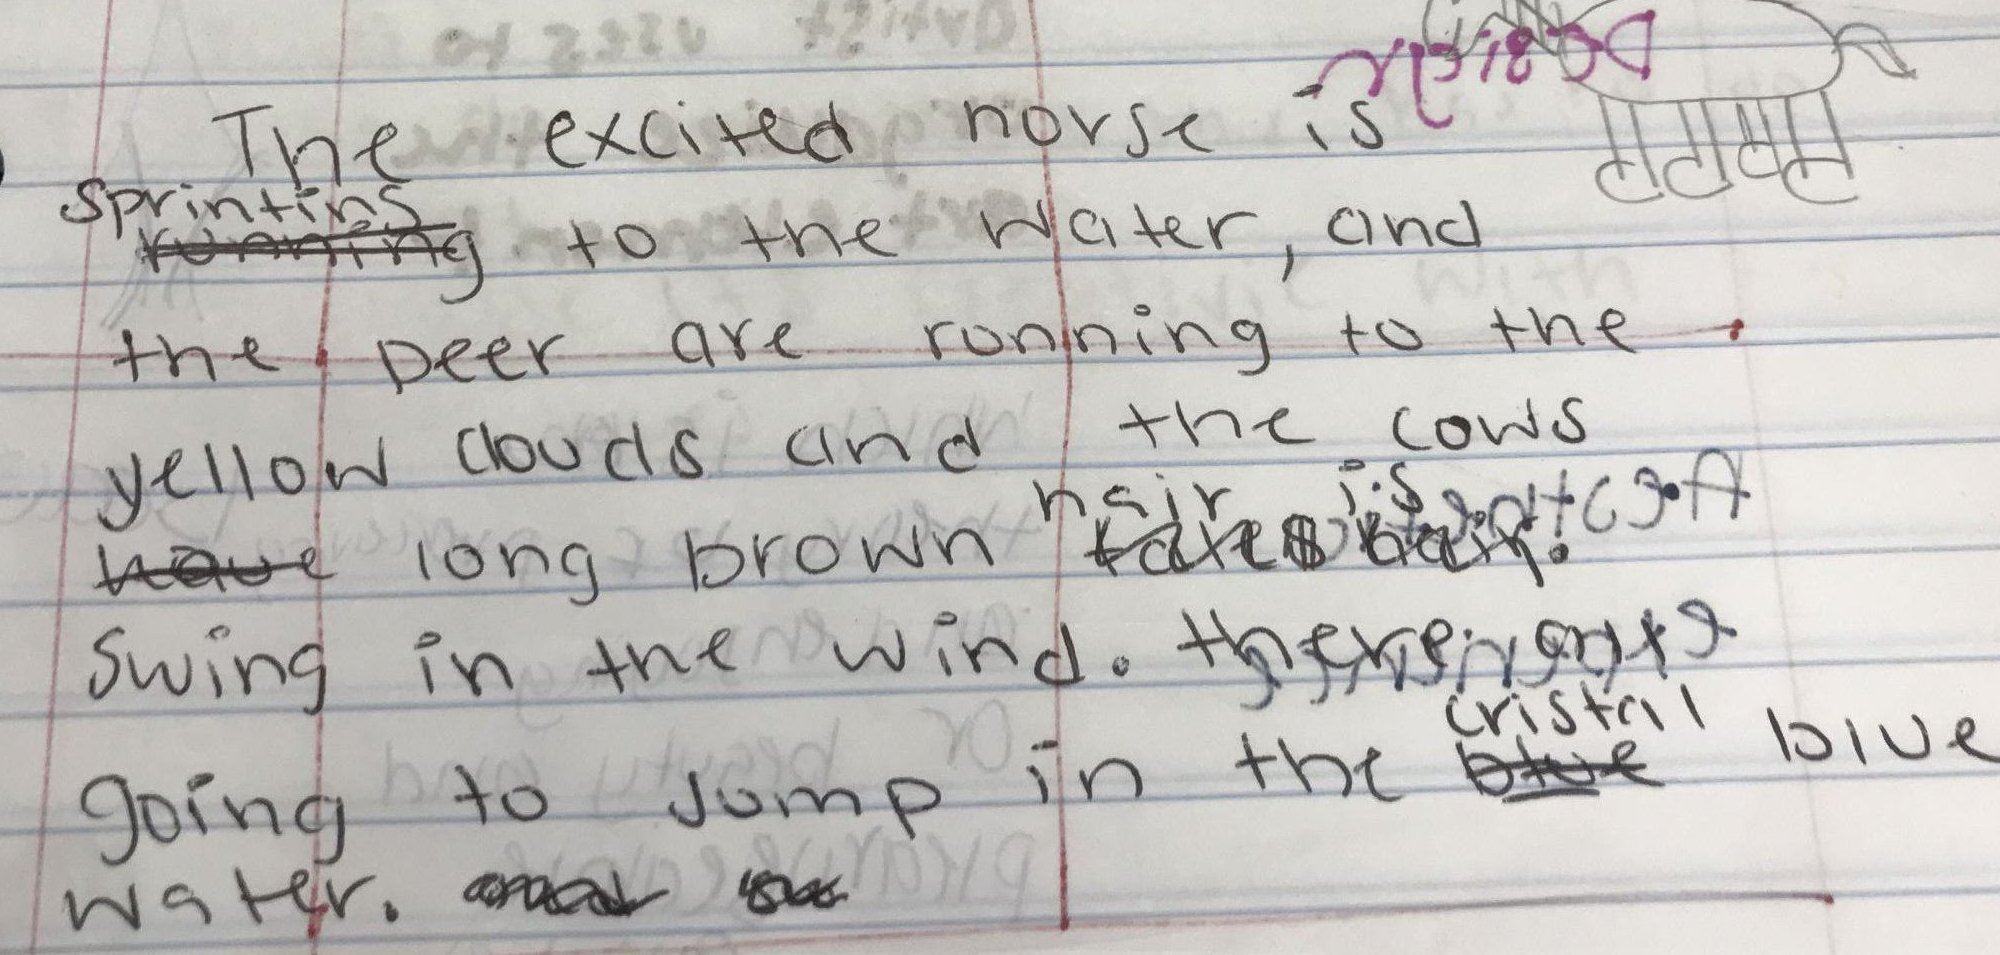 The excited horse is
sprinting
running to the water, and
the Deer are running to the
yellow clouds and the cows
hair is
have long brown
swing in the wind. there
cristal
going to jump in the blue blue
water.